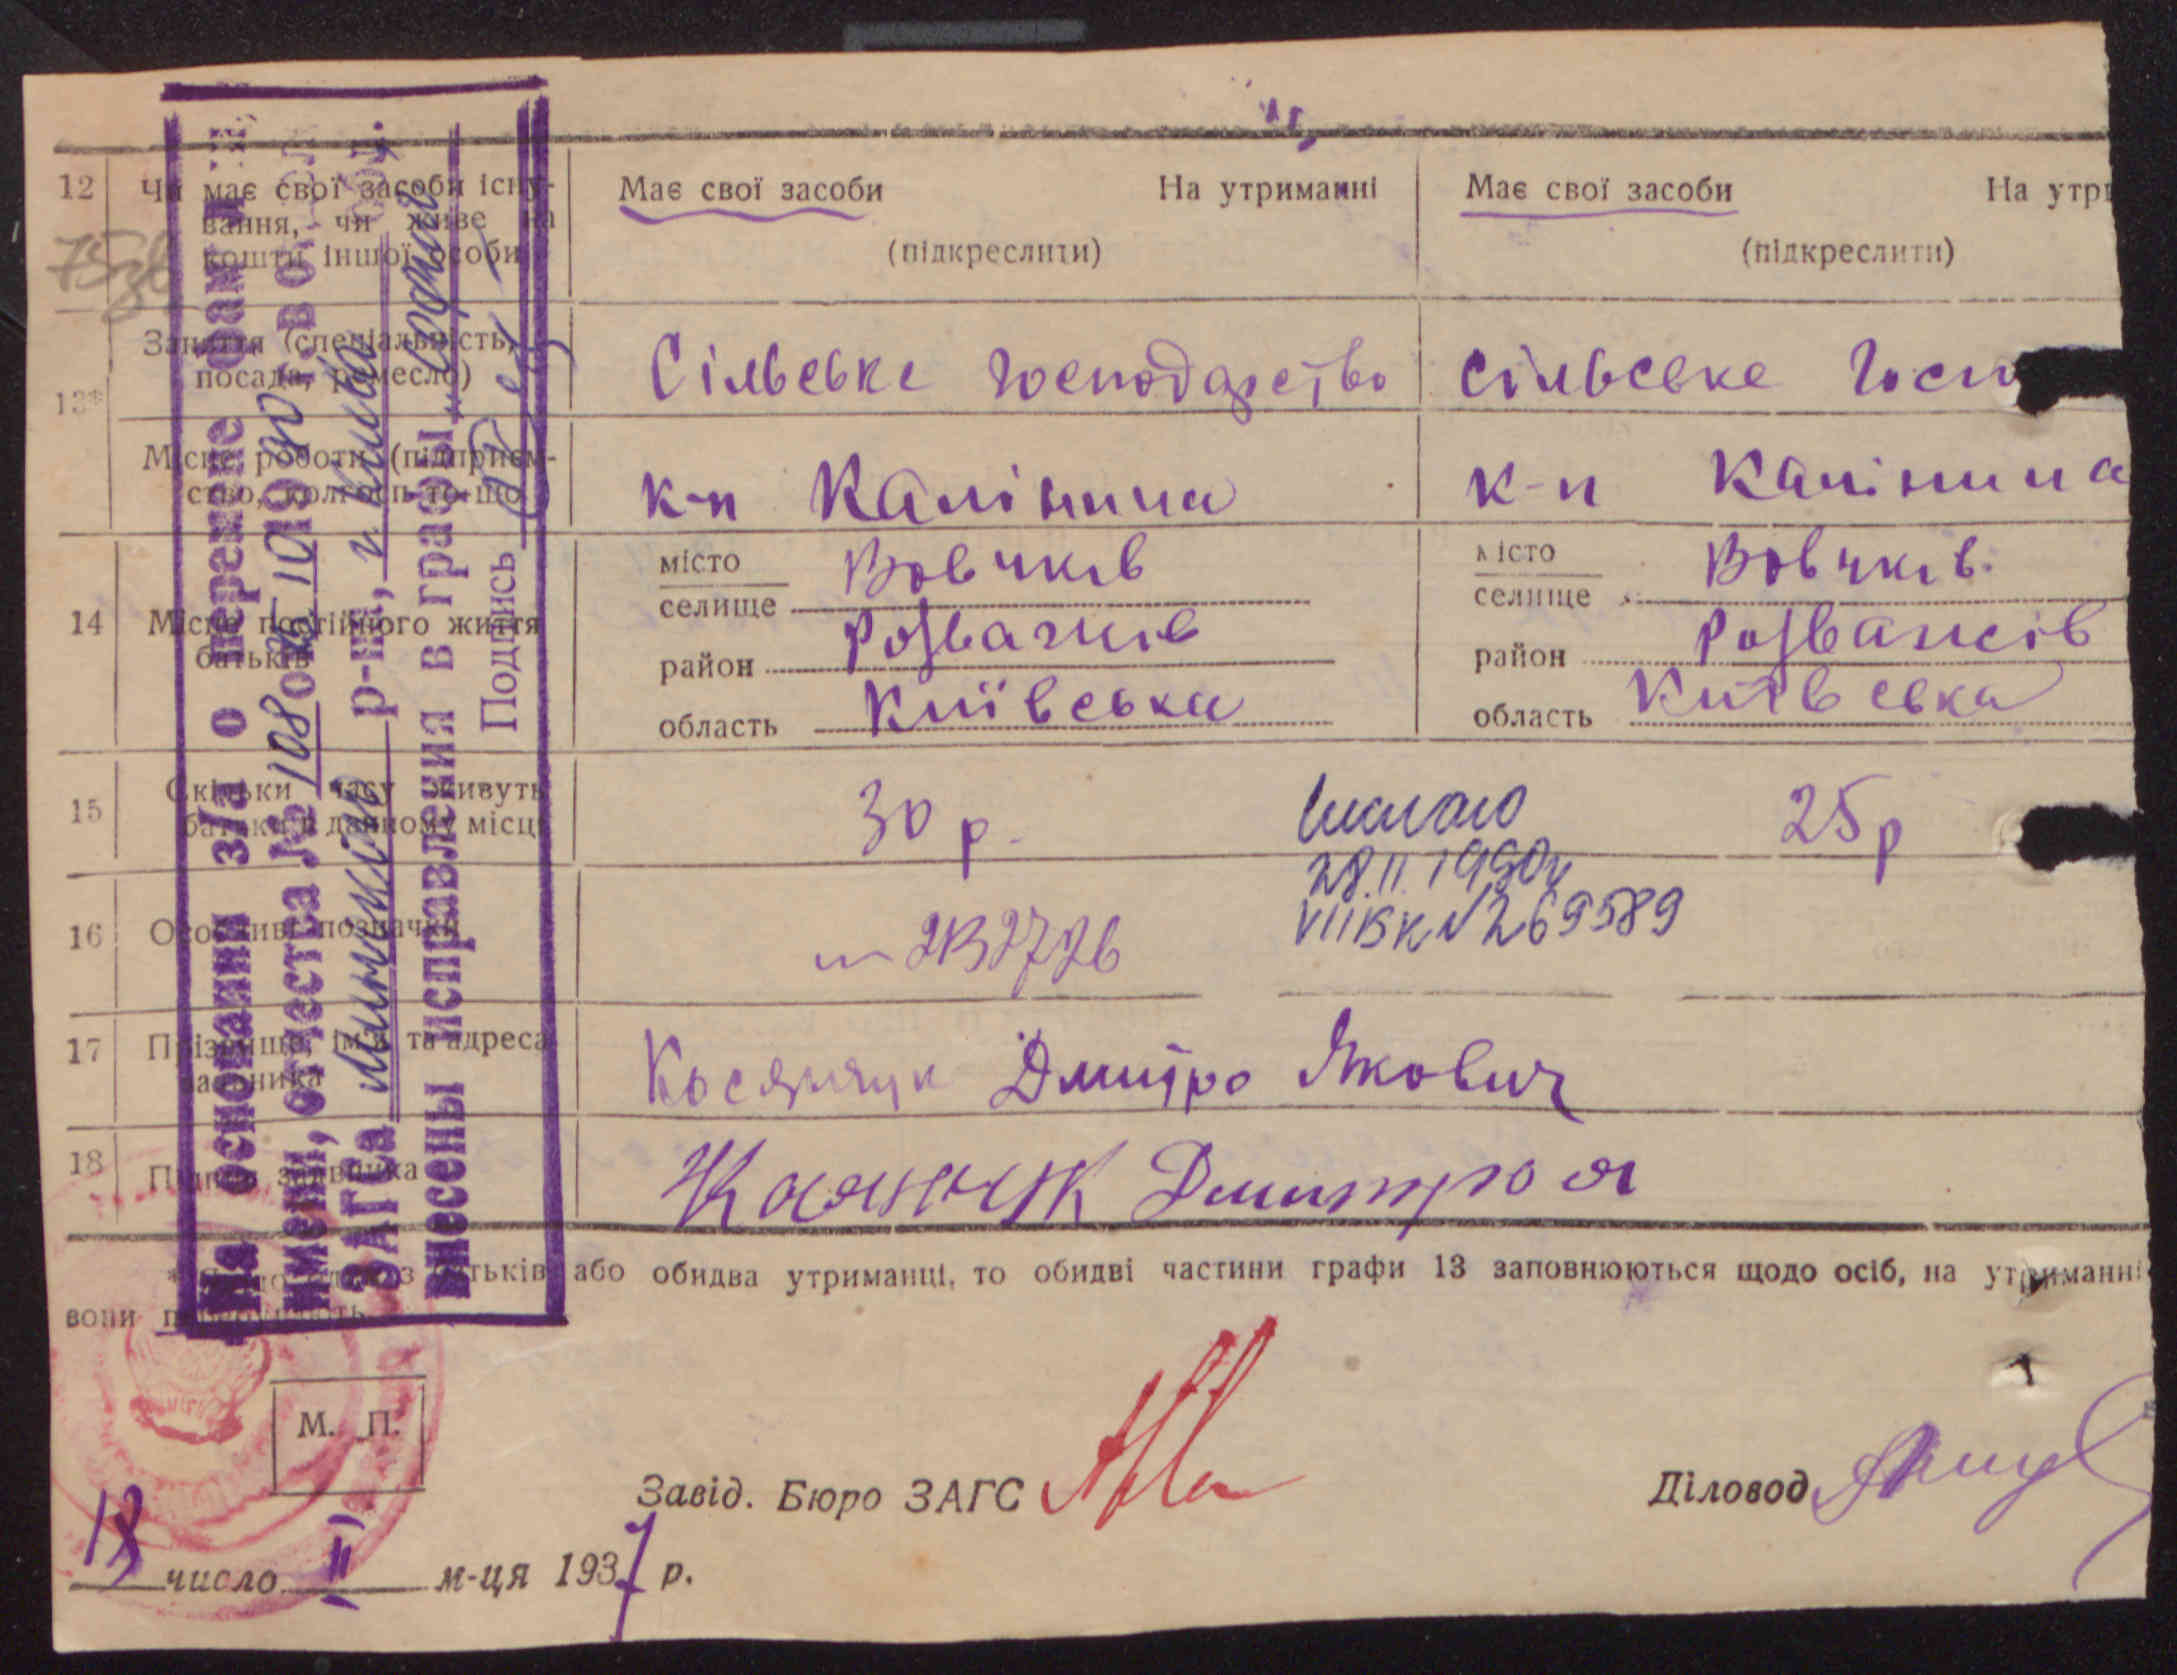 12 Чи має свої засоби існу-
вання, чи живе на
кошти іншої особи
Має свої засоби На утриманні
(підкреслити)
Має свої засоби На утри
(підкреслити)
13*
Заняття (спеціальність,
посада, ремесло)
Сільське господарство
сільське госп
Місце роботи (підприєм-
ство, колгосп то-що
к-п Калініна
к-п Калініна
14 Місце постійного життя
батьків
місто
селище Вовчків
район Розважів
область Київська
місто
селище Вовчків
район Розважів
область Київська
15 Скільки часу живуть
батьки в данному місці
30 р.
25 р
28.II.1950
VIIБК N269589
16 Особливі позначки
17 Прізвище, ім'я та адреса
заявника
Касянчук Дмитро Якович
18 Підпис заявника
Касянчук Дмитро Я
На основании з/а о перемене фам
имени, отчества № 108 от 10
ЗАГСа р-на, г.
внесены исправления в графы
Подпись
* Якщо один з батьків або обидва утриманці, то обидві частини графи 13 заповнюються щодо осіб, на утриманні
вони перебувають
М. П.
Завід. Бюро ЗАГС
Діловод
18 число „II“ м-ця 1937 р.